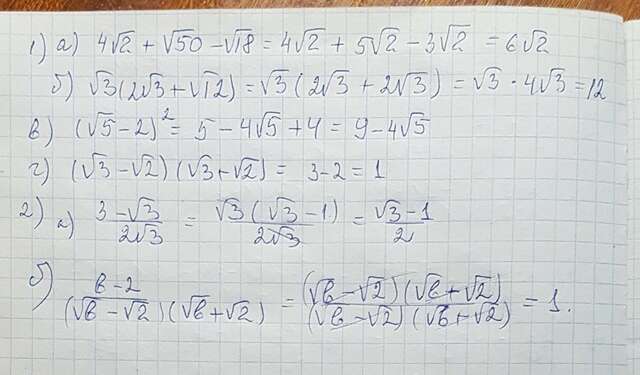 1) а) 4√2 + √50 − √18 = 4√2 + 5√2 − 3√2 = 6√2
б) √3(2√3 + √12) = √3(2√3 + 2√3) = √3 · 4√3 = 12
в) (√5 − 2)² = 5 − 4√5 + 4 = 9 − 4√5
г) (√3 − √2)(√3 + √2) = 3 − 2 = 1
2) а) (3 − √3)/(2√3) = (√3(√3 − 1))/(2√3) = (√3 − 1)/2
б) (в − 2)/((√в − √2)(√в + √2)) = ((√в − √2)(√в + √2))/((√в − √2)(√в + √2)) = 1.